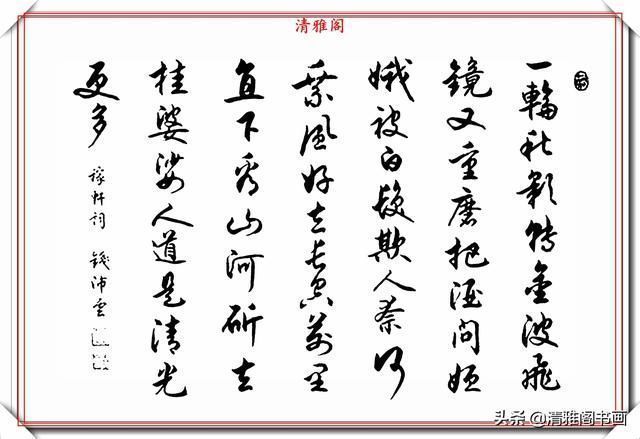 清雅阁
一輪秋影轉金波飛
鏡又重磨把酒問姮
娥被白髮欺人奈何
乘風好去長空萬里
直下看山河斫去
桂婆娑人道是清光
更多
稼軒詞 錢沛雲
头条 @清雅阁书画